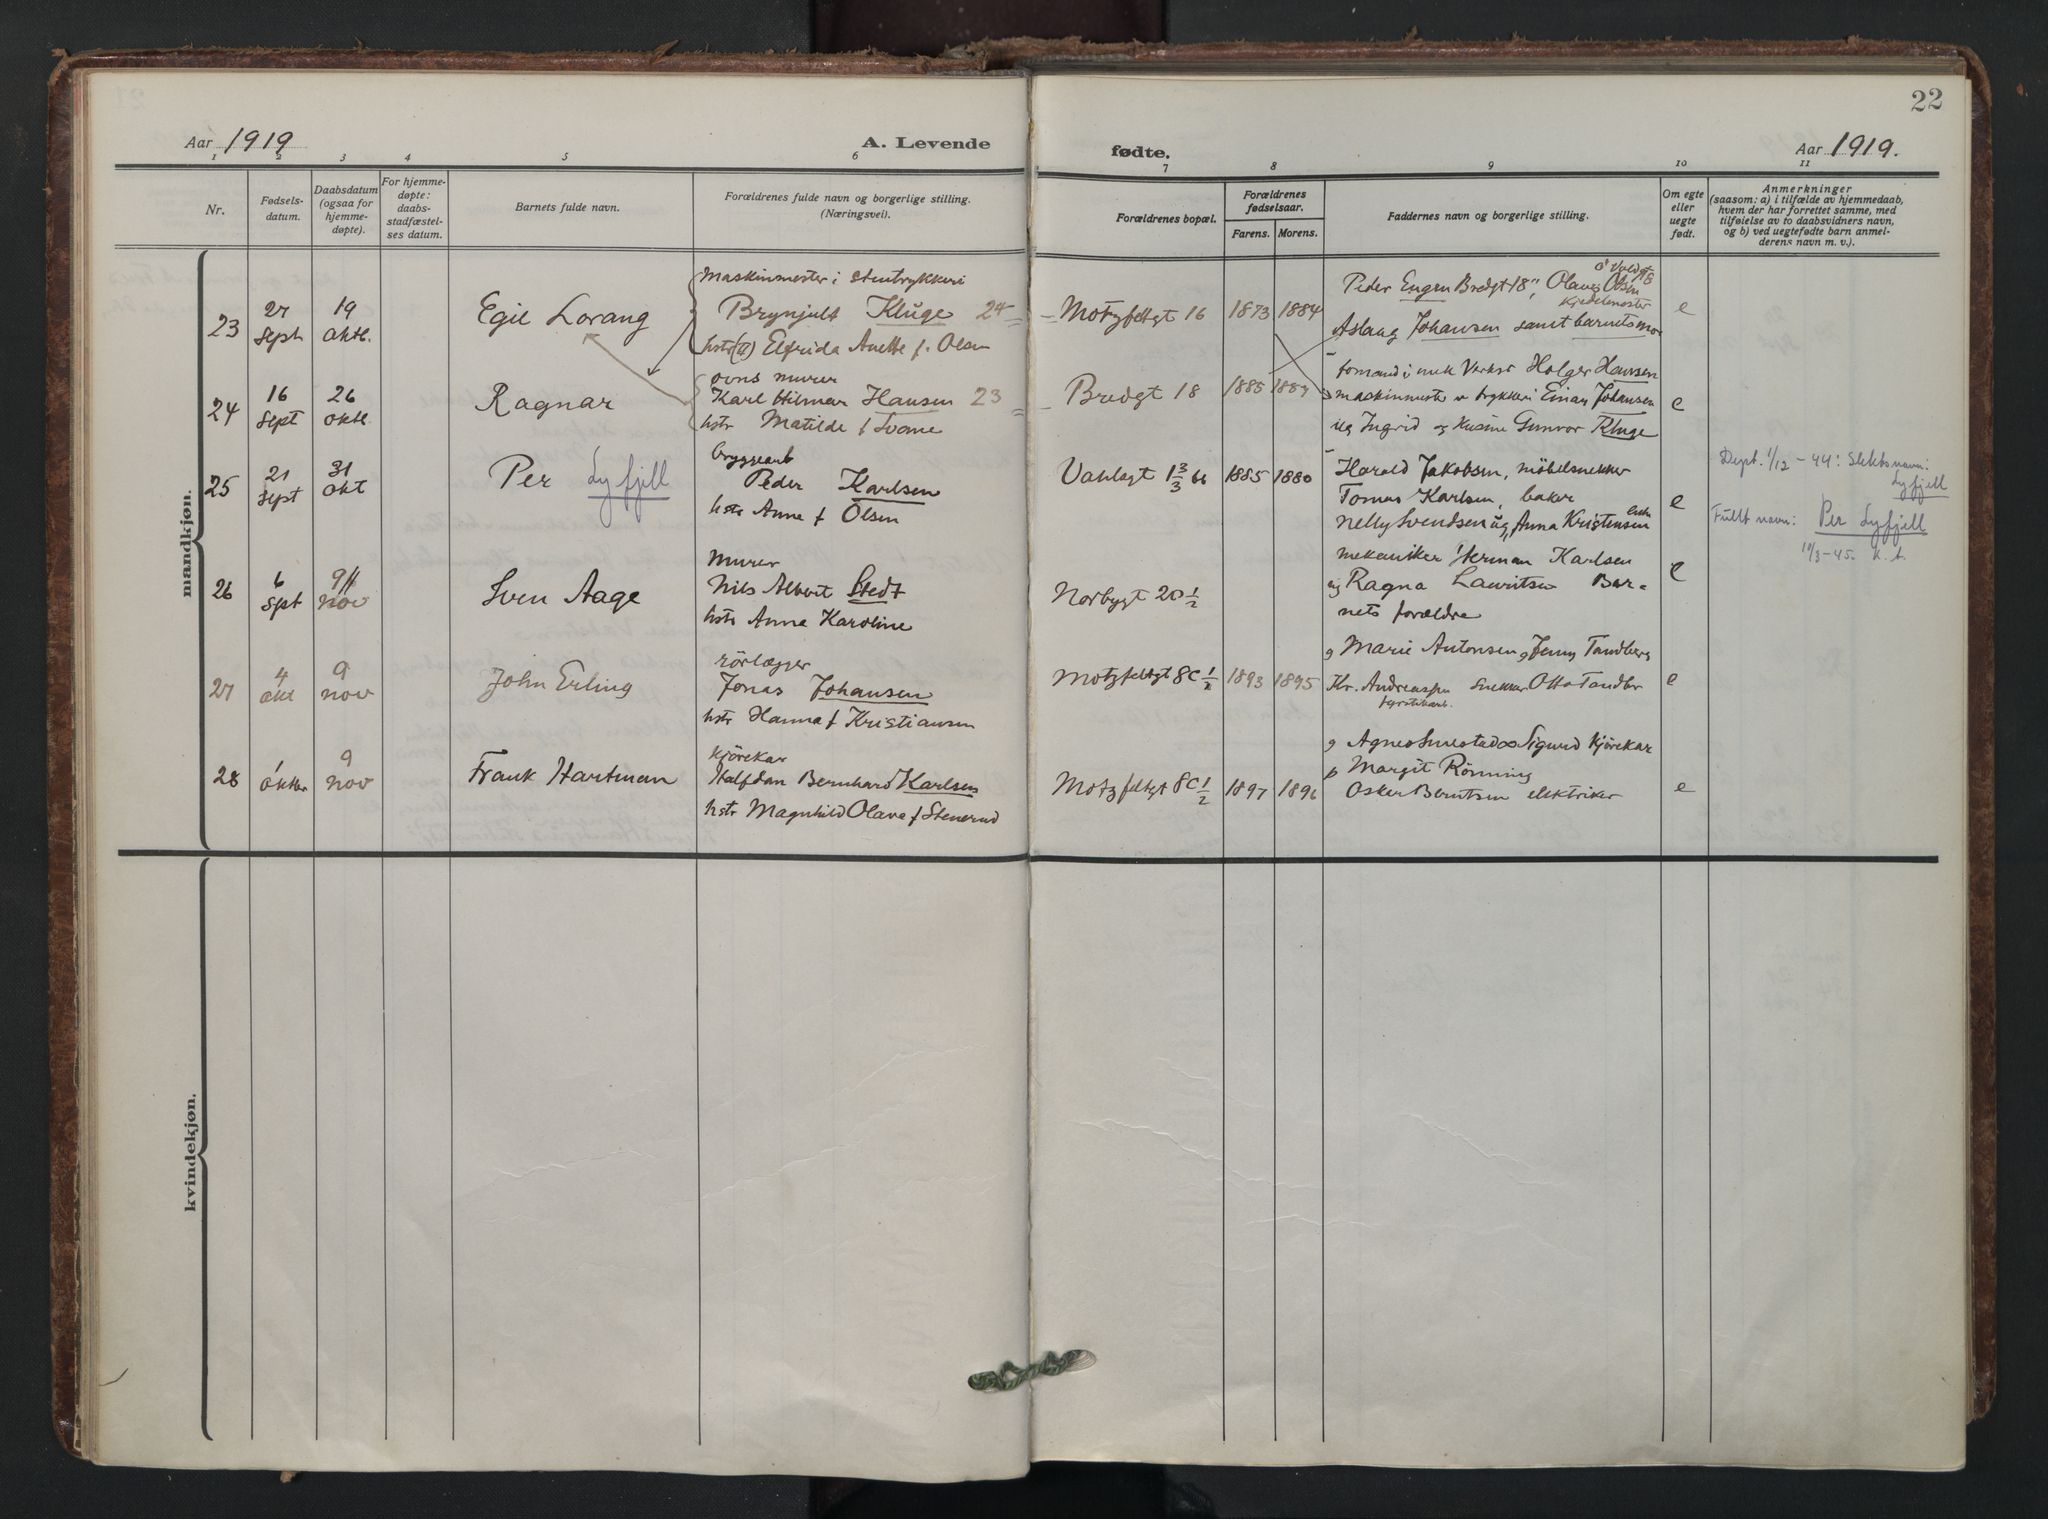 22
Aar 1919
A. Levende
fødte.
Aar 1919.
1 2 3 4 5 6 7 8 9 10 11
Nr.
Fødsels-
datum.
Daabsdatum
(ogsaa for
hjemme-
døpte).
For hjemme-
døpte:
daabs-
stadfæstel-
ses datum.
Barnets fulde navn.
Forældrenes fulde navn og borgerlige stilling.
(Næringsvei).
Forældrenes bopæl.
Forældrenes
fødselsaar.
Farens. Morens.
Faddernes navn og borgerlige stilling.
Om egte
eller
uegte
født.
Anmerkninger
(saasom: a) i tilfælde av hjemmedaab,
hvem der har forrettet samme, med
tilføielse av to daabsvidners navn,
og b) ved uegtefødte barn anmel-
derens navn m. v.).
mandkjøn.
23
27
Sept
19
oktb.
Egil Lorang
Maskinmester i stentrykkeri
Brynjulf Kluge 24
hstr (II) Elfrida Anette f. Olsen
Motzfeltgt 16
1873 1884
Peder Eugen Bredgt 18", Olaves Olsen
kjedelmester
Aslaug Johansen samt barnets mor
e
24
16
Sept
26
oktb.
Ragnar
ovns murer
Karl Hilmar Hansen 23
hstr Matilde f Svane
Bredgt 18
1885 1883
formand i mek Verkst Holger Hansen
maskinmester v trykkeri Einar Johansen
ug Ingrid og Kusine Gunvor Kluge
e
25
21
Sept
31
okt
Per Lyfjell
bryggearb
Peder Karlsen
hstr Anne f Olsen
Vahlsgt 1 3/3
1885 1880
Harald Jakobsen, möbelsnekker
Tomas Karlsen, baker
Nelly Svendsen ug, Anna Kristensen enke
e
Dept. 1/12 - 44: Slektsnavn:
Lyfjell
Fullt navn: Per Lyfjell
10/3-45. K. A.
26
6
Spt
9
nov
Sven Aage
murer
Nils Albert Stedt
hstr Anna Karoline
Norbygt 20 1/2
mekaniker Herman Karlsen
ug Ragna Lauritsen Bar-
nets forældre
e
27
4
okt
9
nov
John Erling
rörlægger
Jonas Johansen
hstr Hanna f Kristiansen
Motzfeltgt 8C 1/2
1893 1895
g Marie Antonsen g Jenny Tandberg
Kr. Andreassen snekker Otto Tandbr
fyrstikarb.
e
28
1
oktbr
9
nov
Frank Hartman
kjörekar
Halfdan Bernhard Karlsen
hstr Magnhild Olava f Stenerud
Motzfeltgt 8C 1/2
1897 1896
g Agnes Smestad og Sigurd kjörekar
p Margit Rönning
Oskar Berntsen elektriker
e
kvindekjøn.